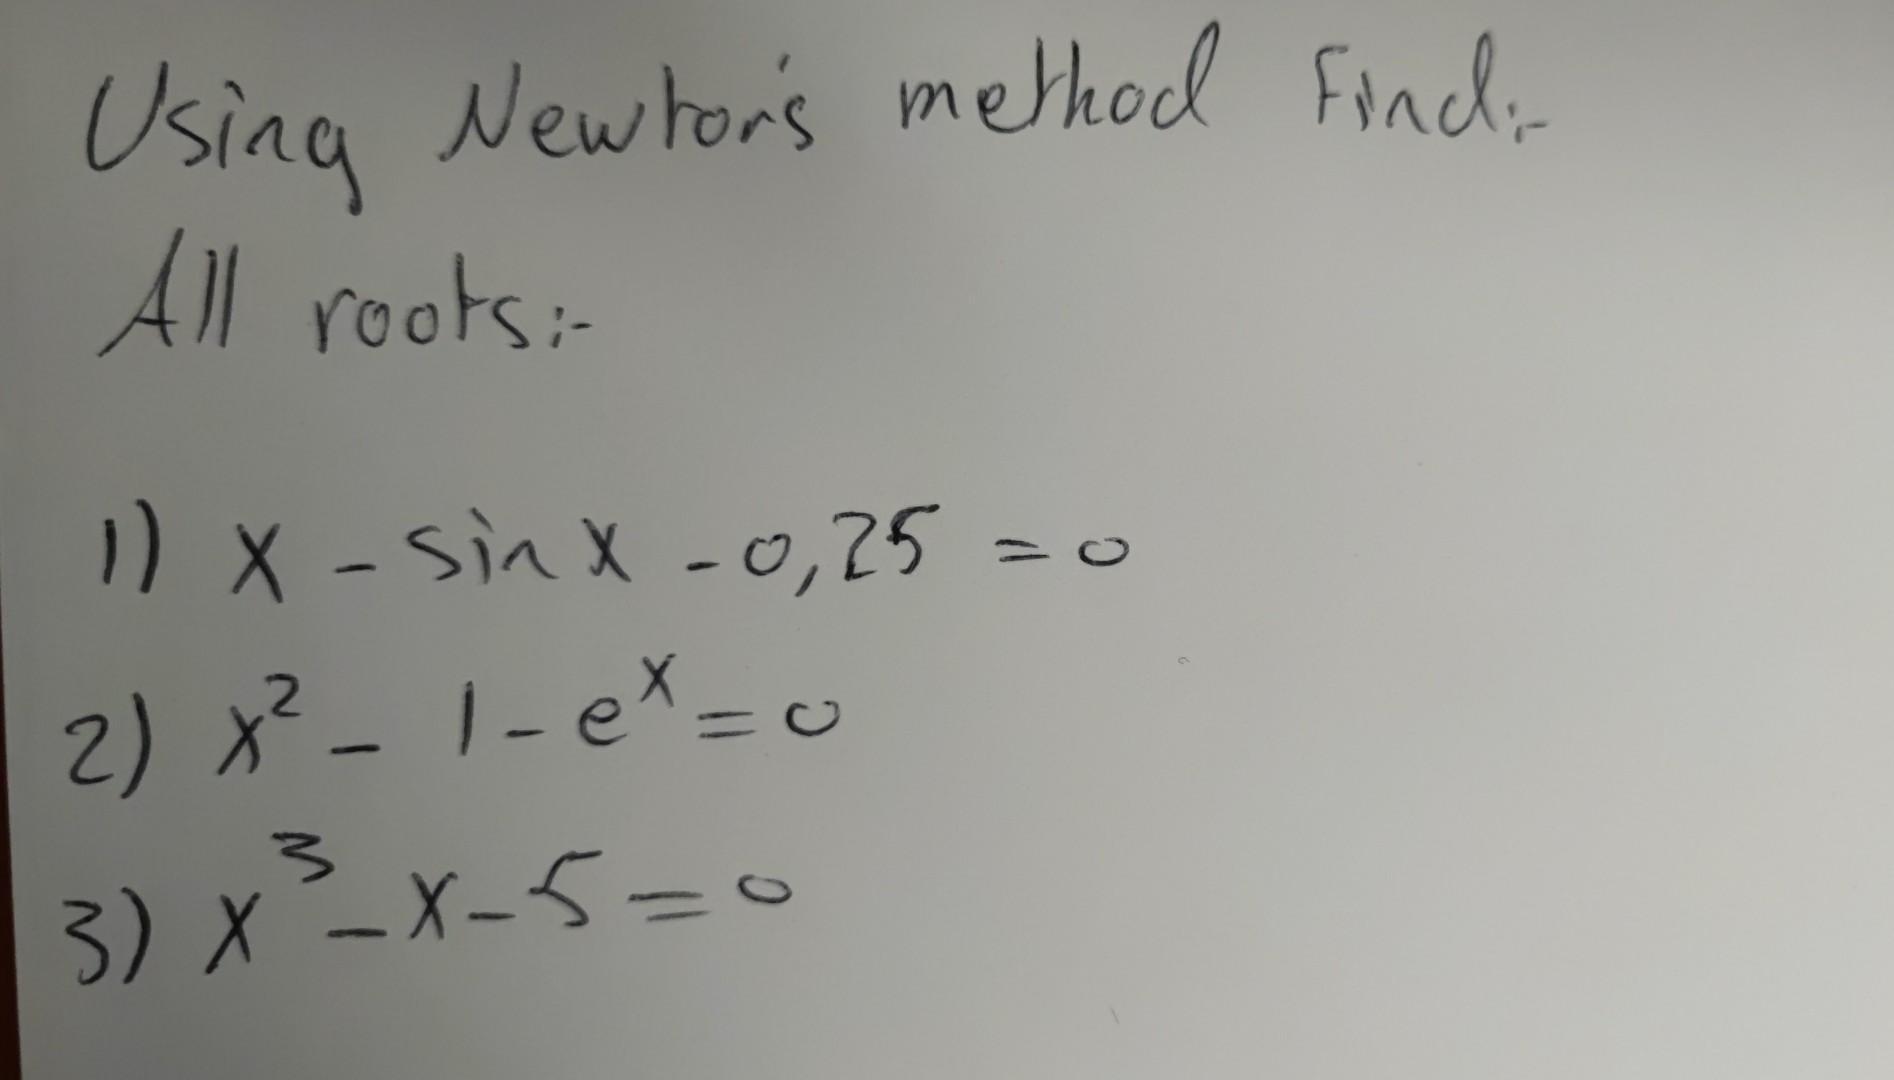 Using Newton's method Find:-
All roots:-
1) x - sin x - 0,25 = 0
2) x² - 1 - eˣ = 0
3) x³ - x - 5 = 0